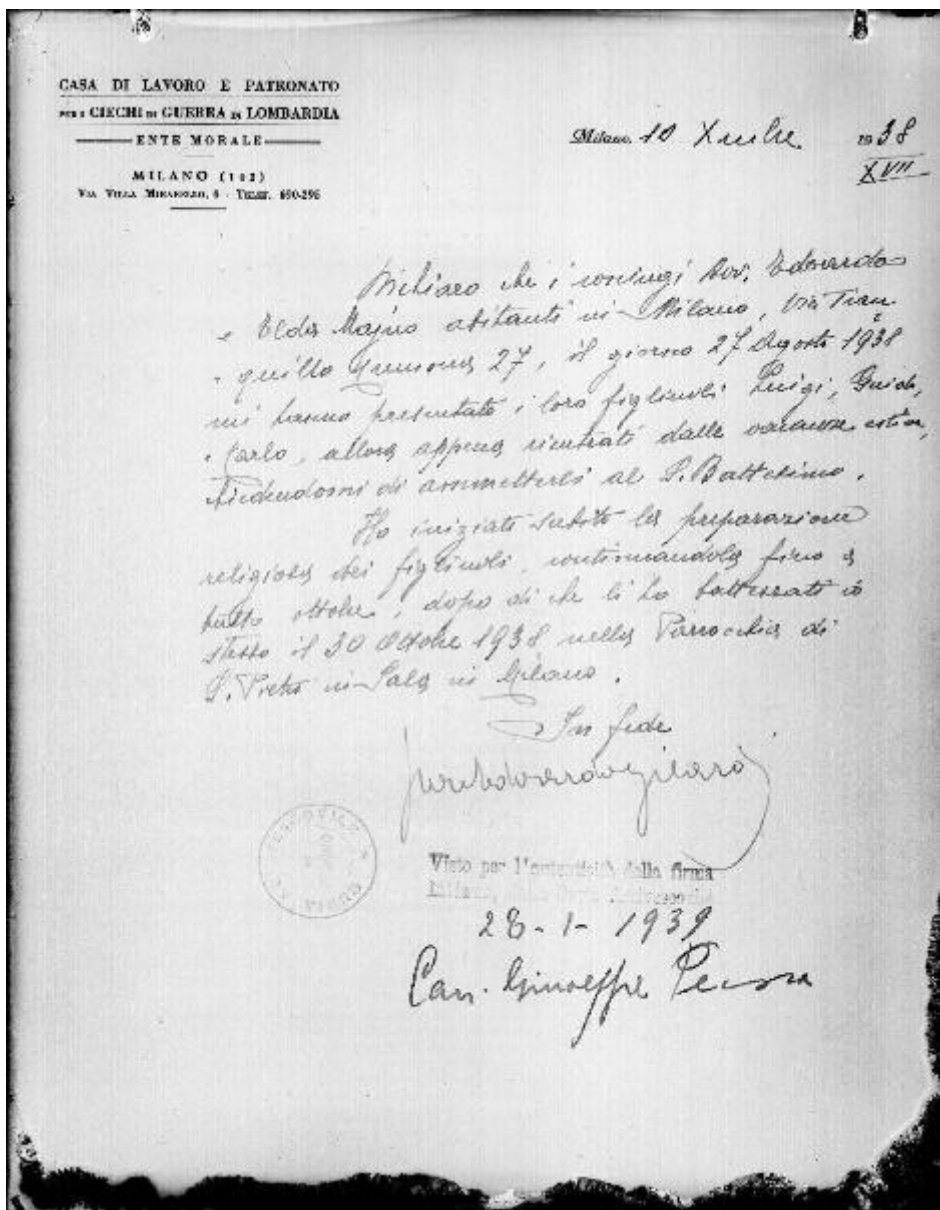 CASA DI LAVORO E PATRONATO
PER I CIECHI DI GUERRA DI LOMBARDIA
ENTE MORALE
MILANO (102)
VIA VILLA MIRABELLO, 6 - TELEF. 690-296
Milano, 10 Xmbre 1938
XVII
Dichiaro che i coniugi Avv. Edoardo
e Elda Majno abitanti in Milano, Via Tran
quillo Cremona 27, il giorno 27 Agosto 1938
mi hanno presentato i loro figliuoli Luigi, Guido,
e Carlo, allora appena rientrati dalle vacanze estive,
chiedendomi di ammetterli al S. Battesimo.
Ho iniziato subito la preparazione
religiosa dei figliuoli, continuandola fino a
tutto ottobre, dopo di che li ho battezzati io
stesso il 30 Ottobre 1938 nella Parrocchia di
S. Pietro in Sala in Milano.
In fede
Edoardo Gilardi
Visto per l'autenticità della firma
Milano,
28-1-1939
Can. Giuseppe